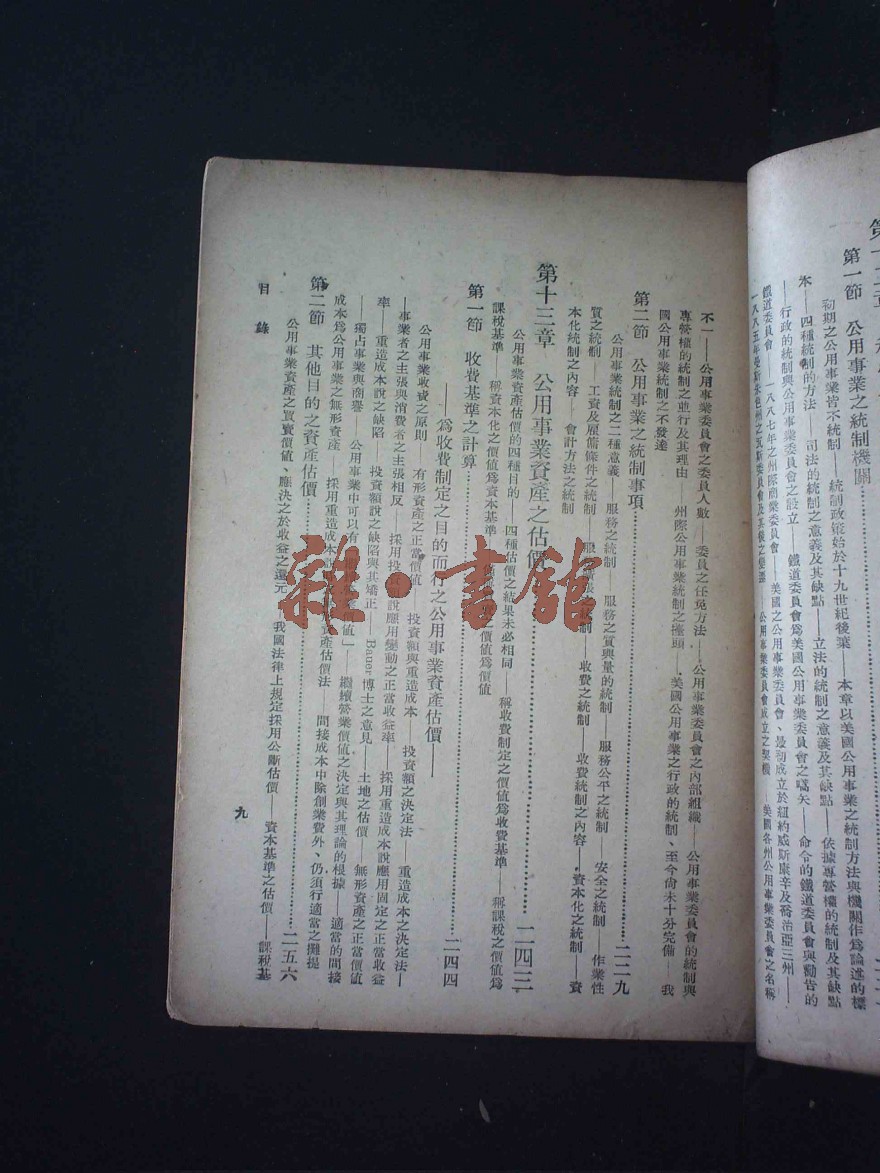 第一節 公用事業之統制機關
初期之公用事業皆不統制——統制政策始於十九世紀後葉——本章以美國公用事業之統制方法與機關作爲論述的標
米——四種統制的方法——司法的統制之意義及其缺點——立法的統制之意義及其缺點——依據專營權的統制及其缺點
——行政的統制與公用事業委員會之設立——鐵道委員會爲美國公用事業委員會之嚆矢——命令的鐵道委員會與勸告的
鐵道委員會——一八八七年之州際商業委員會——美國之公用事業委員會、最初成立於紐約威斯康辛及喬治亞三州——
一八八五年 之瓦斯委員會及其後之變遷——公用事業委員會成立之契機——美國各州公用事業委員會之名稱
不一——公用事業委員會之委員人數——委員之任免方法——公用事業委員會之內部組織——公用事業委員會的統制與
專營權的統制之並行及其理由——州際公用事業統制之擡頭——美國公用事業之行政的統制、至今尙未十分完備——我
國公用事業統制之不發達
第二節 公用事業之統制事項……二二九
公用事業統制之二種意義——服務之統制——服務之質與量的統制——服務公平之統制——安全之統制——作業性
質之統制——工資及雇傭條件之統制——服 擴張之統制——收費之統制——收費統制之內容——資本化之統制——資
本化統制之內容——會計方法之統制
第十三章 公用事業資產之估價……二四三
公用事業資產估價的四種目的——四種估價之結果未必相同——稱收費制定之價値爲收費基準——稱課稅之價値爲
課稅基準——稱資本化之價値爲資本基準 價値爲 價値
第一節 收費基準之計算……二四四
——爲收費制定之目的而行之公用事業資產估價——
公用事業收費之原則——有形資產之正當價値——投資額與重造成本——投資額之決定法——重造成本之決定法—
—事業者之主張與消費者之主張相反——採用投資 說應用變動之正當收益率——採用重造成本說應用固定之正當收益
率——重造成本說之缺陷——投資額說之缺陷與其矯正——Bauer博士之意見——土地之估價——無形資產之正當價値
——獨占事業與商譽——公用事業中可以有 價値」——繼續營業價値之決定與其理論的根據——適當的間接
成本爲公用事業之無形資產——採用重造成本說 資產估價法——間接成本中除創業費外、仍須行適當之攤提
第二節 其他目的之資產估價……二五六
公用事業資產之買賣價値、應決之於收益之還元——我國法律上規定採用公斷估價——資本基準之估價——課稅基
目 錄
九
雜·書館